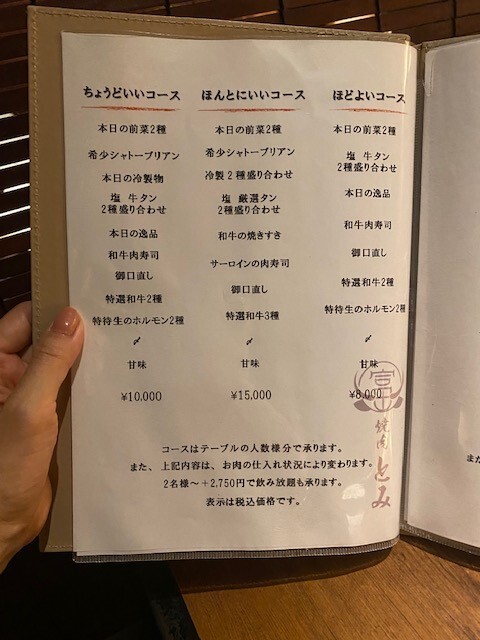 ちょうどいいコース
本日の前菜2種
希少シャトーブリアン
本日の冷製物
塩 牛タン
2種盛り合わせ
本日の逸品
和牛肉寿司
御口直し
特選和牛2種
特待生のホルモン2種
〆
甘味
¥10,000
ほんとにいいコース
本日の前菜2種
希少シャトーブリアン
冷製2種盛り合わせ
塩 厳選タン
2種盛り合わせ
和牛の焼きすき
サーロインの肉寿司
御口直し
特選和牛3種
〆
甘味
¥15,000
ほどよいコース
本日の前菜2種
塩 牛タン
2種盛り合わせ
本日の逸品
和牛肉寿司
御口直し
特選和牛2種
特待生のホルモン2種
甘味
¥8,000
コースはテーブルの人数様分で承ります。
また、上記内容は、お肉の仕入れ状況により変わります。
2名様~+2,750円で飲み放題も承ります。
表示は税込価格です。
富
焼肉 とみ
また